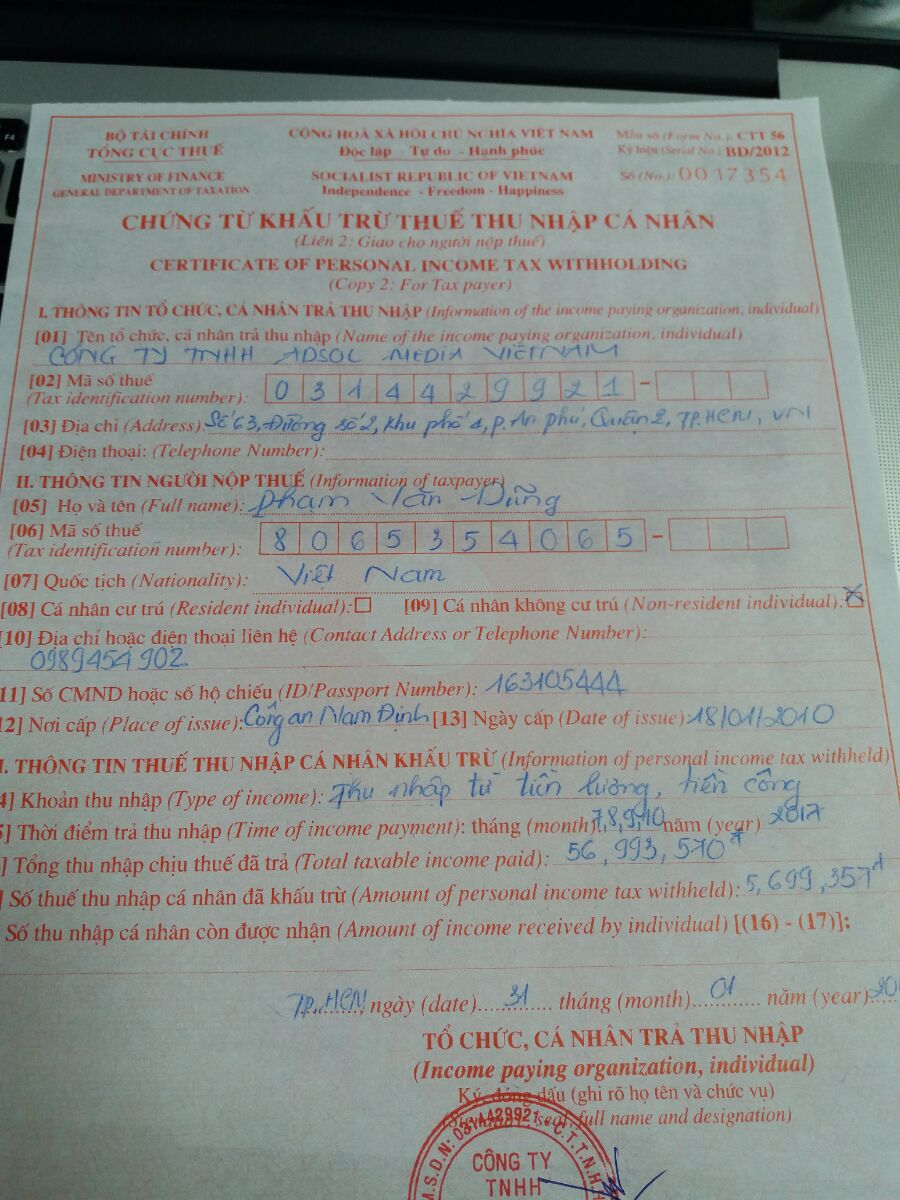 F4
BỘ TÀI CHÍNH
TỔNG CỤC THUẾ
MINISTRY OF FINANCE
GENERAL DEPARTMENT OF TAXATION
CỘNG HOÀ XÃ HỘI CHỦ NGHĨA VIỆT NAM
Độc lập - Tự do - Hạnh phúc
SOCIALIST REPUBLIC OF VIETNAM
Independence - Freedom - Happiness
Mẫu số (Form No.): CTT 56
Ký hiệu (Serial No.): BD/2012
Số (No.): 0017354
CHỨNG TỪ KHẤU TRỪ THUẾ THU NHẬP CÁ NHÂN
(Liên 2: Giao cho người nộp thuế)
CERTIFICATE OF PERSONAL INCOME TAX WITHHOLDING
(Copy 2: For Tax payer)
I. THÔNG TIN TỔ CHỨC, CÁ NHÂN TRẢ THU NHẬP (Information of the income paying organization, individual)
[01] Tên tổ chức, cá nhân trả thu nhập (Name of the income paying organization, individual)
CÔNG TY TNHH ADSOL MEDIA VIETNAM
[02] Mã số thuế
(Tax identification number): 0314429921 -
[03] Địa chỉ (Address): Số 63, Đường số 2, Khu phố 4, P. An phú, Quận 2, TP.HCM, VN
[04] Điện thoại: (Telephone Number):
II. THÔNG TIN NGƯỜI NỘP THUẾ (Information of taxpayer)
[05] Họ và tên (Full name): Phạm Văn Dũng
[06] Mã số thuế
(Tax identification number): 8065354065 -
[07] Quốc tịch (Nationality): Việt Nam
[08] Cá nhân cư trú (Resident individual): [09] Cá nhân không cư trú (Non-resident individual): X
[10] Địa chỉ hoặc điện thoại liên hệ (Contact Address or Telephone Number):
0989454902
11] Số CMND hoặc số hộ chiếu (ID/Passport Number): 163105444
12] Nơi cấp (Place of issue): Công an Nam Định [13] Ngày cấp (Date of issue) 18/01/2010
I. THÔNG TIN THUẾ THU NHẬP CÁ NHÂN KHẤU TRỪ (Information of personal income tax withheld)
4] Khoản thu nhập (Type of income): Thu nhập từ tiền lương, tiền công
5] Thời điểm trả thu nhập (Time of income payment): tháng (month) 7,8,9,10 năm (year) 2017
] Tổng thu nhập chịu thuế đã trả (Total taxable income paid): 56,993,570đ
] Số thuế thu nhập cá nhân đã khấu trừ (Amount of personal income tax withheld): 5,699,357đ
Số thu nhập cá nhân còn được nhận (Amount of income received by individual) [(16) - (17)]:
TP.HCM ngày (date) 31 tháng (month) 01 năm (year) 20
TỔ CHỨC, CÁ NHÂN TRẢ THU NHẬP
(Income paying organization, individual)
Ký, đóng dấu (ghi rõ họ tên và chức vụ)
(Signature, seal, full name and designation)
M.S.D.N: 0314429921 - C.T.T.N.H.H
CÔNG TY
TNHH